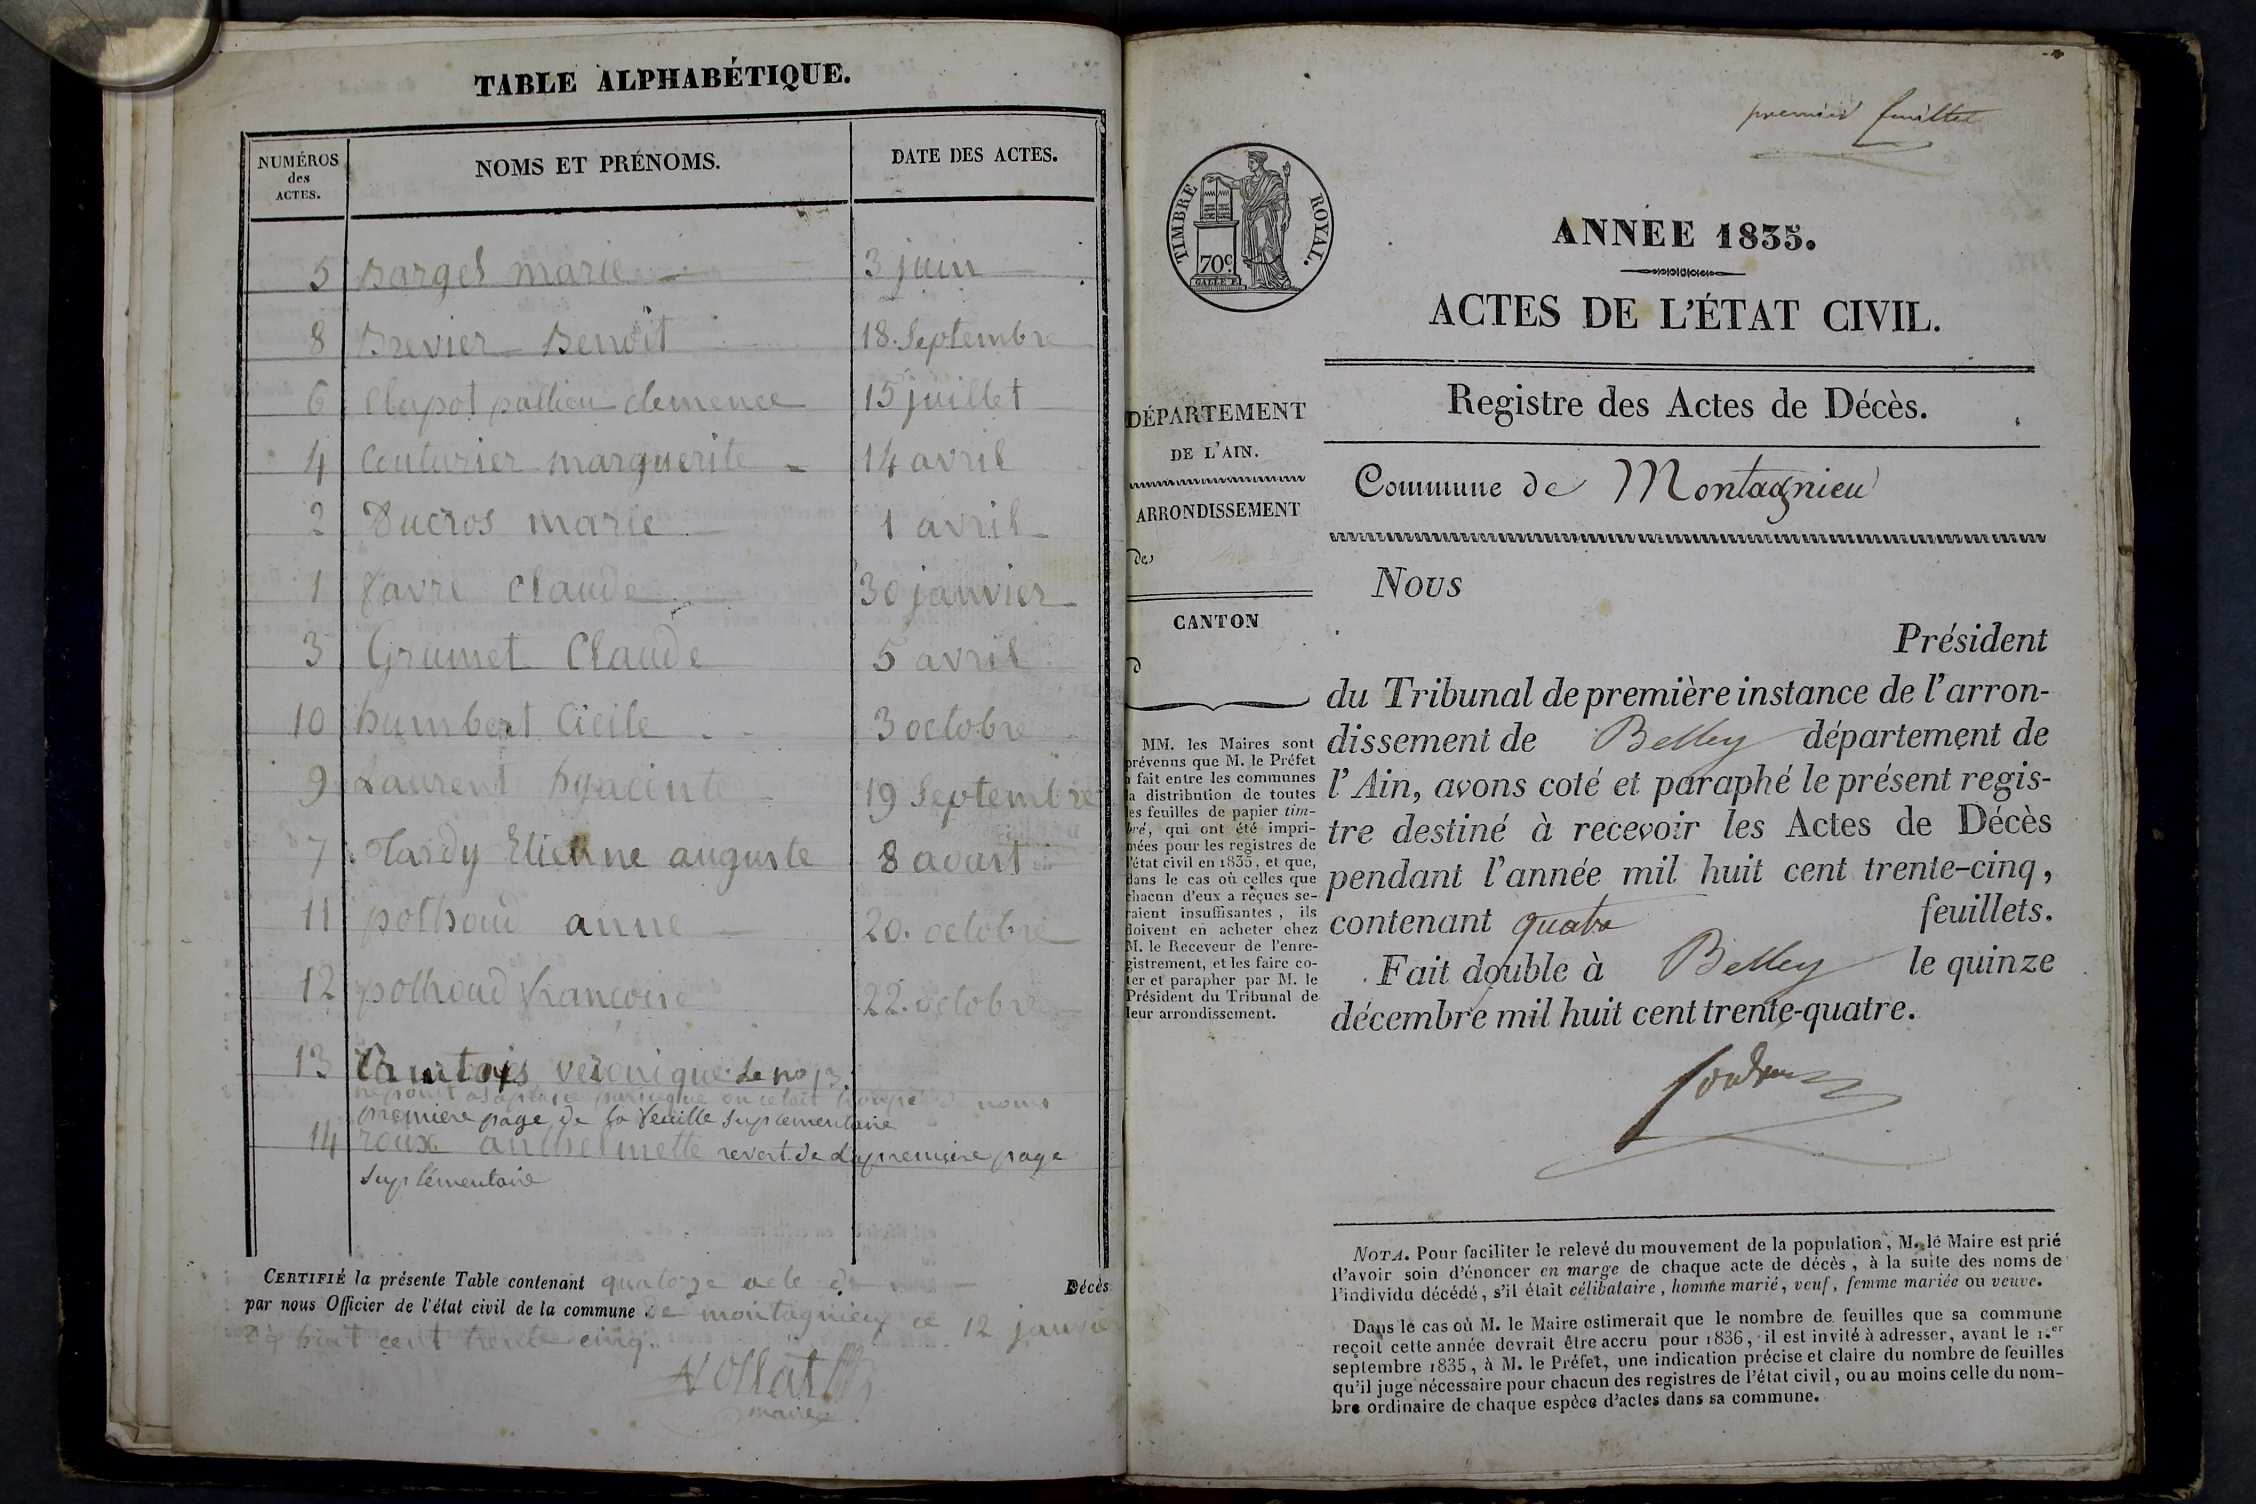 TABLE ALPHABÉTIQUE.
NUMÉROS
des
ACTES.
NOMS ET PRÉNOMS.
DATE DES ACTES.
5 Barget marie 3 juin
8 Brevier Benoit 18. Septembre
6 Clapot pallieu clemence 15 juillet
4 Couturier marguerite 14 avril
2 Ducros marie 1 avril
1 Favre Claude 30 janvier
3 Grumet Claude 5 avril
10 humbert Cicile 3 octobre
9 Laurent hyacinte 19 Septembre
7 Tardy Etienne auguste 8 aoust
11 pothoud anne 20. octobre
12 pothoud francoise 22. octobre
13 Courtois veronique Le no 13.
parceque on cetait trompé de nom
premiere page de la feuille suplementaire
14 roux anthelmette revert de la premiere page
suplémentaire
CERTIFIÉ la présente Table contenant quatorze acte de Décès
par nous Officier de l'état civil de la commune de montagnieu ce 12 janvier
huit cent trente cinq.
Nollat
maire
premier feuillet
TIMBRE ROYAL.
70c
GALLE F.
ANNÉE 1835.
ACTES DE L'ÉTAT CIVIL.
Registre des Actes de Décès.
Commune de Montagnieu
DÉPARTEMENT
DE L'AIN.
ARRONDISSEMENT
de
CANTON
d
MM. les Maires sont
prévenus que M. le Préfet
a fait entre les communes
la distribution de toutes
les feuilles de papier tim-
bré, qui ont été impri-
mées pour les registres de
l'état civil en 1835, et que,
dans le cas où celles que
chacun d'eux a reçues se-
raient insuffisantes, ils
doivent en acheter chez
M. le Receveur de l'enre-
gistrement, et les faire co-
ter et parapher par M. le
Président du Tribunal de
leur arrondissement.
Nous
Président
du Tribunal de première instance de l'arron-
dissement de Belley département de
l'Ain, avons coté et paraphé le présent regis-
tre destiné à recevoir les Actes de Décès
pendant l'année mil huit cent trente-cinq,
contenant quatre feuillets.
Fait double à Belley le quinze
décembre mil huit cent trente-quatre.
NOTA. Pour faciliter le relevé du mouvement de la population, M. le Maire est prié
d'avoir soin d'énoncer en marge de chaque acte de décès, à la suite des noms de
l'individu décédé, s'il était célibataire, homme marié, veuf, femme mariée ou veuve.
Dans le cas où M. le Maire estimerait que le nombre de feuilles que sa commune
reçoit cette année devrait être accru pour 1836, il est invité à adresser, avant le 1.er
septembre 1835, à M. le Préfet, une indication précise et claire du nombre de feuilles
qu'il juge nécessaire pour chacun des registres de l'état civil, ou au moins celle du nom-
bre ordinaire de chaque espèce d'actes dans sa commune.